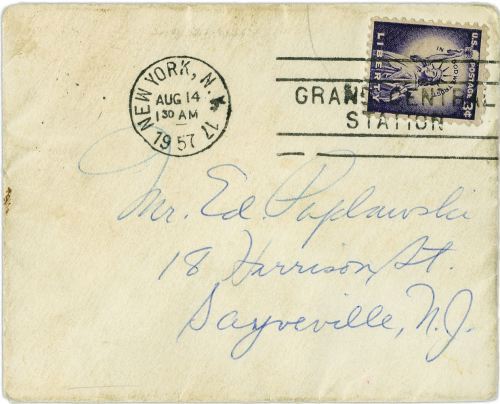 U.S. POSTAGE 3¢
LIBERTY
IN GOD WE TRUST
NEW YORK, N.Y.
AUG 14
1 30 AM
1957
17
GRAND CENTRAL
STATION
Mr. Ed. Paplawski
18 Harrison, St.
Sayreville, N.J.